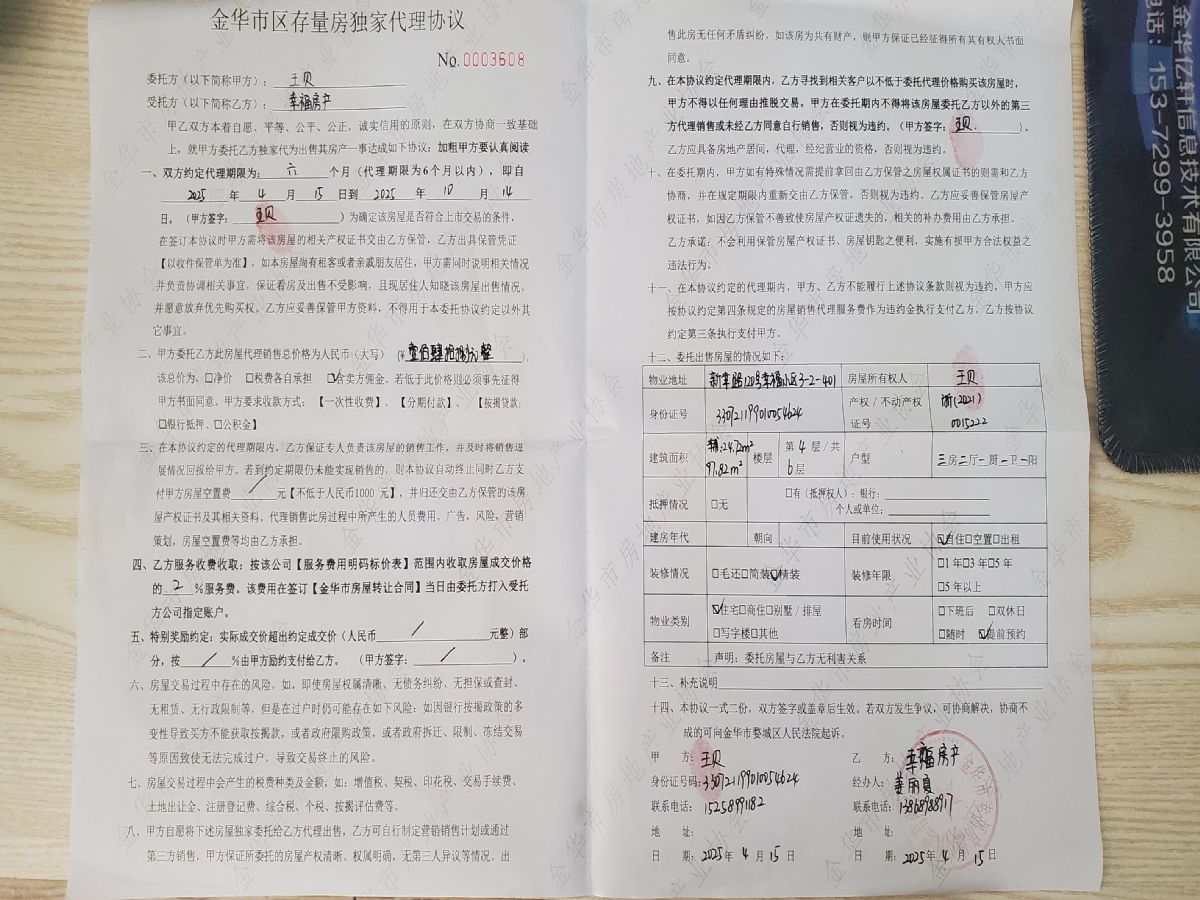 金华市区存量房独家代理协议
No.0003608
委托方（以下简称甲方）：王贝
受托方（以下简称乙方）：幸福房产
甲乙双方本着自愿、平等、公平、公正，诚实信用的原则，在双方协商一致基础
上，就甲方委托乙方独家代为出售其房产一事达成如下协议：加粗甲方要认真阅读
一、双方约定代理期限为：六 个月（代理期限为6个月以内），即自
2025 年 4 月 15 日到 2025 年 10 月 14
日。（甲方签字：王贝）为确定该房屋是否符合上市交易的条件，
在签订本协议时甲方需将该房屋的相关产权证书交由乙方保管，乙方出具保管凭证
【以收件保管单为准】，如本房屋尚有租客或者亲戚朋友居住，甲方需同时说明相关情况
并负责协调相关事宜，保证看房及出售不受影响，且现居住人知晓该房屋出售情况，
并愿意放弃优先购买权。乙方应妥善保管甲方资料，不得用于本委托协议约定以外其
它事宜。
二、甲方委托乙方此房屋代理销售总价格为人民币（大写）（¥壹佰肆拾捌万元整），
该总价为、□净价 □税费各自承担 ☑含卖方佣金。若低于此价格则必须事先征得
甲方书面同意。甲方要求收款方式：【一次性收费】、【分期付款】、【按揭贷款：
□银行抵押、□公积金】
三、在本协议约定的代理期限内，乙方保证专人负责该房屋的销售工作，并及时将销售进
展情况回报给甲方。若到约定期限仍未能实现销售的，则本协议自动终止同时乙方支
付甲方房屋空置费 / 元【不低于人民币1000 元】，并归还交由乙方保管的该房
屋产权证书及其相关资料。代理销售此房过程中所产生的人员费用、广告，风险，营销
策划，房屋空置费等均由乙方承担。
四、乙方服务收费收取：按该公司【服务费用明码标价表】范围内收取房屋成交价格
的 2 %服务费。该费用在签订【金华市房屋转让合同】当日由委托方打入受托
方公司指定账户。
五、特别奖励约定：实际成交价超出约定成交价（人民币 / 元整）部
分，按 / %由甲方励约支付给乙方。（甲方签字： / ）。
六、房屋交易过程中存在的风险，如，即使房屋权属清晰、无债务纠纷、无担保或查封、
无租赁、无行政限制等，但是在过户时仍可能存在如下风险：如因银行按揭政策的多
变性导致买方不能获取按揭款，或者政府限购政策，或者政府拆迁、限制、冻结交易
等原因致使无法完成过户，导致交易终止的风险。
七、房屋交易过程中会产生的税费种类及金额，如：增值税、契税、印花税、交易手续费、
土地出让金、注册登记费、综合税、个税、按揭评估费等。
八、甲方自愿将下述房屋独家委托给乙方代理出售，乙方可自行制定营销销售计划或通过
第三方销售，甲方保证所委托的房屋产权清晰、权属明确，无第三人异议等情况，出
售此房无任何矛盾纠纷，如该房为共有财产，则甲方保证已经征得所有其有权人书面
同意。
九、在本协议约定代理期限内，乙方寻找到相关客户以不低于委托代理价格购买该房屋时，
甲方不得以任何理由推脱交易。甲方在委托期内不得将该房屋委托乙方以外的第三
方代理销售或未经乙方同意自行销售，否则视为违约。（甲方签字：王贝）。
乙方应具备房地产居间，代理，经纪营业的资格，否则视为违约。
十、在委托期内，甲方如有特殊情况需提前拿回由乙方保管之房屋权属证书的则需和乙方
协商，并在规定期限内重新交由乙方保管，否则视为违约。乙方应妥善保管房屋产
权证书，如因乙方保管不善致使房屋产权证遗失的，相关的补办费用由乙方承担。
乙方承诺：不会利用保管房屋产权证书、房屋钥匙之便利，实施有损甲方合法权益之
违法行为。
十一、在本协议约定的代理期内，甲方、乙方不能履行上述协议条款则视为违约，甲方应
按协议约定第四条规定的房屋销售代理服务费作为违约金执行支付乙方。乙方按协议
约定第三条执行支付甲方。
十二、委托出售房屋的情况如下：
物业地址 新华路120号幸福小区3-2-401 房屋所有权人 王贝
身份证号 330721199010054624 产权/不动产权证号 浙(2021)0015222
建筑面积 辅:24.72m² 97.82m² 楼层 第 4 层/共 6 层 户型 三房二厅一厨一卫一阳
抵押情况 □无 □有（抵押权人）：银行：
个人或单位：
建房年代 朝向 目前使用状况 ☑自住□空置□出租
装修情况 □毛还□简装☑精装 装修年限 □1年□3年□5年
□5年以上
物业类别 ☑住宅□商住□别墅/排屋
□写字楼□其他 看房时间 □下班后 □双休日
□随时 ☑提前预约
备注 声明：委托房屋与乙方无利害关系
十三、补充说明
十四、本协议一式二份，双方签字或盖章后生效。若双方发生争议，可协商解决，协商不
成的可向金华市婺城区人民法院起诉。
甲 方：王贝
身份证号码：330721199010054624
联系电话：15258991182
地 址：
日 期：2025年 4 月 15 日
乙 方：幸福房产
经办人：姜丽霞
联系电话：13868988917
地 址：
日 期：2025年 4 月 15 日
金华亿轩信息技术有限公司
电话：153-7299-3958